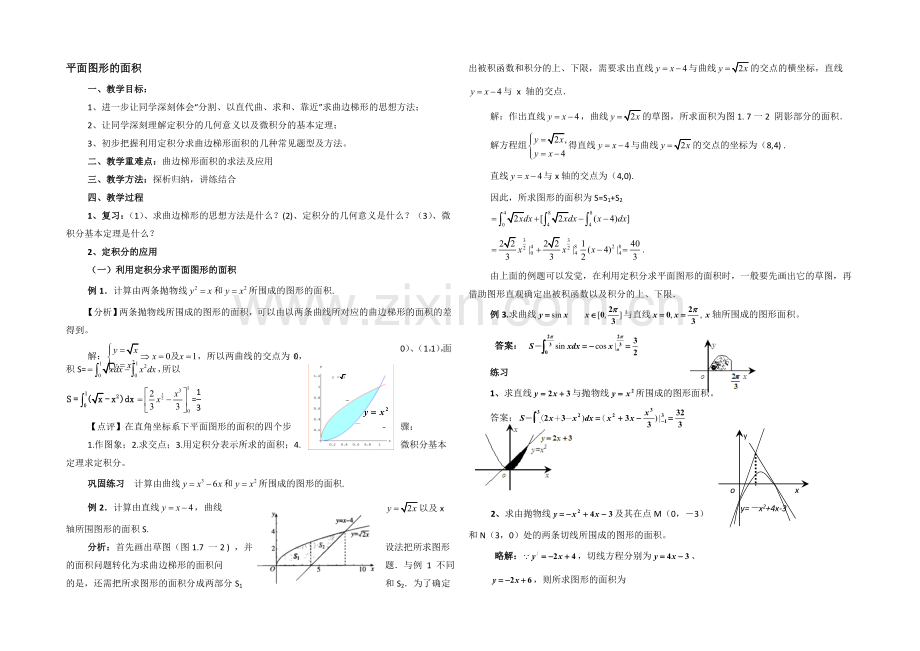 平面图形的面积
一、教学目标:
1、进一步让同学深刻体会“分割、以直代曲、求和、靠近”求曲边梯形的思想方法;
2、让同学深刻理解定积分的几何意义以及微积分的基本定理;
3、初步把握利用定积分求曲边梯形面积的几种常见题型及方法。
二、教学重难点: 曲边梯形面积的求法及应用
三、教学方法: 探析归纳, 讲练结合
四、教学过程
1、复习:(1)、求曲边梯形的思想方法是什么? (2)、定积分的几何意义是什么? (3)、微
积分基本定理是什么?
2、定积分的应用
(一)利用定积分求平面图形的面积
例 1. 计算由两条抛物线 y² = x 和 y = x² 所围成的图形的面积.
【分析】两条抛物线所围成的图形的面积, 可以由以两条曲线所对应的曲边梯形的面积的差
得到。
解: { y = √x, y = x² ⇒ x = 0及x = 1, 所以两曲线的交点为 0, 0)、(1,1), 面
积 S= ∫₀¹ √x dx − ∫₀¹ x² dx, 所以
S = ∫₀¹ (√x − x²) dx = [2/3 x^(3/2) − x³/3]₀¹ = 1/3
y = x²
【点评】在直角坐标系下平面图形的面积的四个步 骤:
1.作图象; 2.求交点; 3.用定积分表示所求的面积; 4. 微积分基本
定理求定积分。
巩固练习 计算由曲线 y = x³ − 6x 和 y = x² 所围成的图形的面积.
例 2. 计算由直线 y = x − 4, 曲线 y = √2x 以及 x
轴所围图形的面积 S.
分析: 首先画出草图 (图 1.7 一 2 ) , 并 设法把所求图形
的面积问题转化为求曲边梯形的面积问 题. 与例 1 不同
的是, 还需把所求图形的面积分成两部分 S1 和 S2. 为了确定
y y=x-4 y=√2x S₁ S₂ O 5 10 x
出被积函数和积分的上、下限, 需要求出直线 y = x − 4 与曲线 y = √2x 的交点的横坐标, 直线
y = x − 4 与 x 轴的交点.
解: 作出直线 y = x − 4, 曲线 y = √2x 的草图, 所求面积为图 1. 7 一 2 阴影部分的面积.
解方程组 { y = √2x, y = x − 4 得直线 y = x − 4 与曲线 y = √2x 的交点的坐标为 (8,4) .
直线 y = x − 4 与 x 轴的交点为 (4,0).
因此, 所求图形的面积为 S=S₁+S₂
= ∫₀⁴ √2x dx + [∫₄⁸ √2x dx − ∫₄⁸ (x − 4)dx]
= 2√2/3 x^(3/2) |₀⁴ + 2√2/3 x^(3/2) |₄⁸ − 1/2 (x − 4)² |₄⁸ = 40/3 .
由上面的例题可以发觉, 在利用定积分求平面图形的面积时, 一般要先画出它的草图, 再
借助图形直观确定出被积函数以及积分的上、下限.
例 3.求曲线 y = sin x x∈[0, 2π/3] 与直线 x = 0, x = 2π/3, x 轴所围成的图形面积。
答案: S = ∫₀^(2π/3) sin x dx = −cos x |₀^(2π/3) = 3/2
y o 2π/3 x
练习
1、求直线 y = 2x + 3 与抛物线 y = x² 所围成的图形面积。
答案: S = ∫₋₁³ (2x + 3 − x²)dx = (x² + 3x − x³/3)|₋₁³ = 32/3
x y=2x+3 y=x² o x
y o x y=−x²+4x-3
2、求由抛物线 y = −x² + 4x − 3 及其在点 M (0, −3)
和 N (3, 0) 处的两条切线所围成的图形的面积。
略解: ∵ y′ = −2x + 4, 切线方程分别为 y = 4x − 3、
y = −2x + 6, 则所求图形的面积为